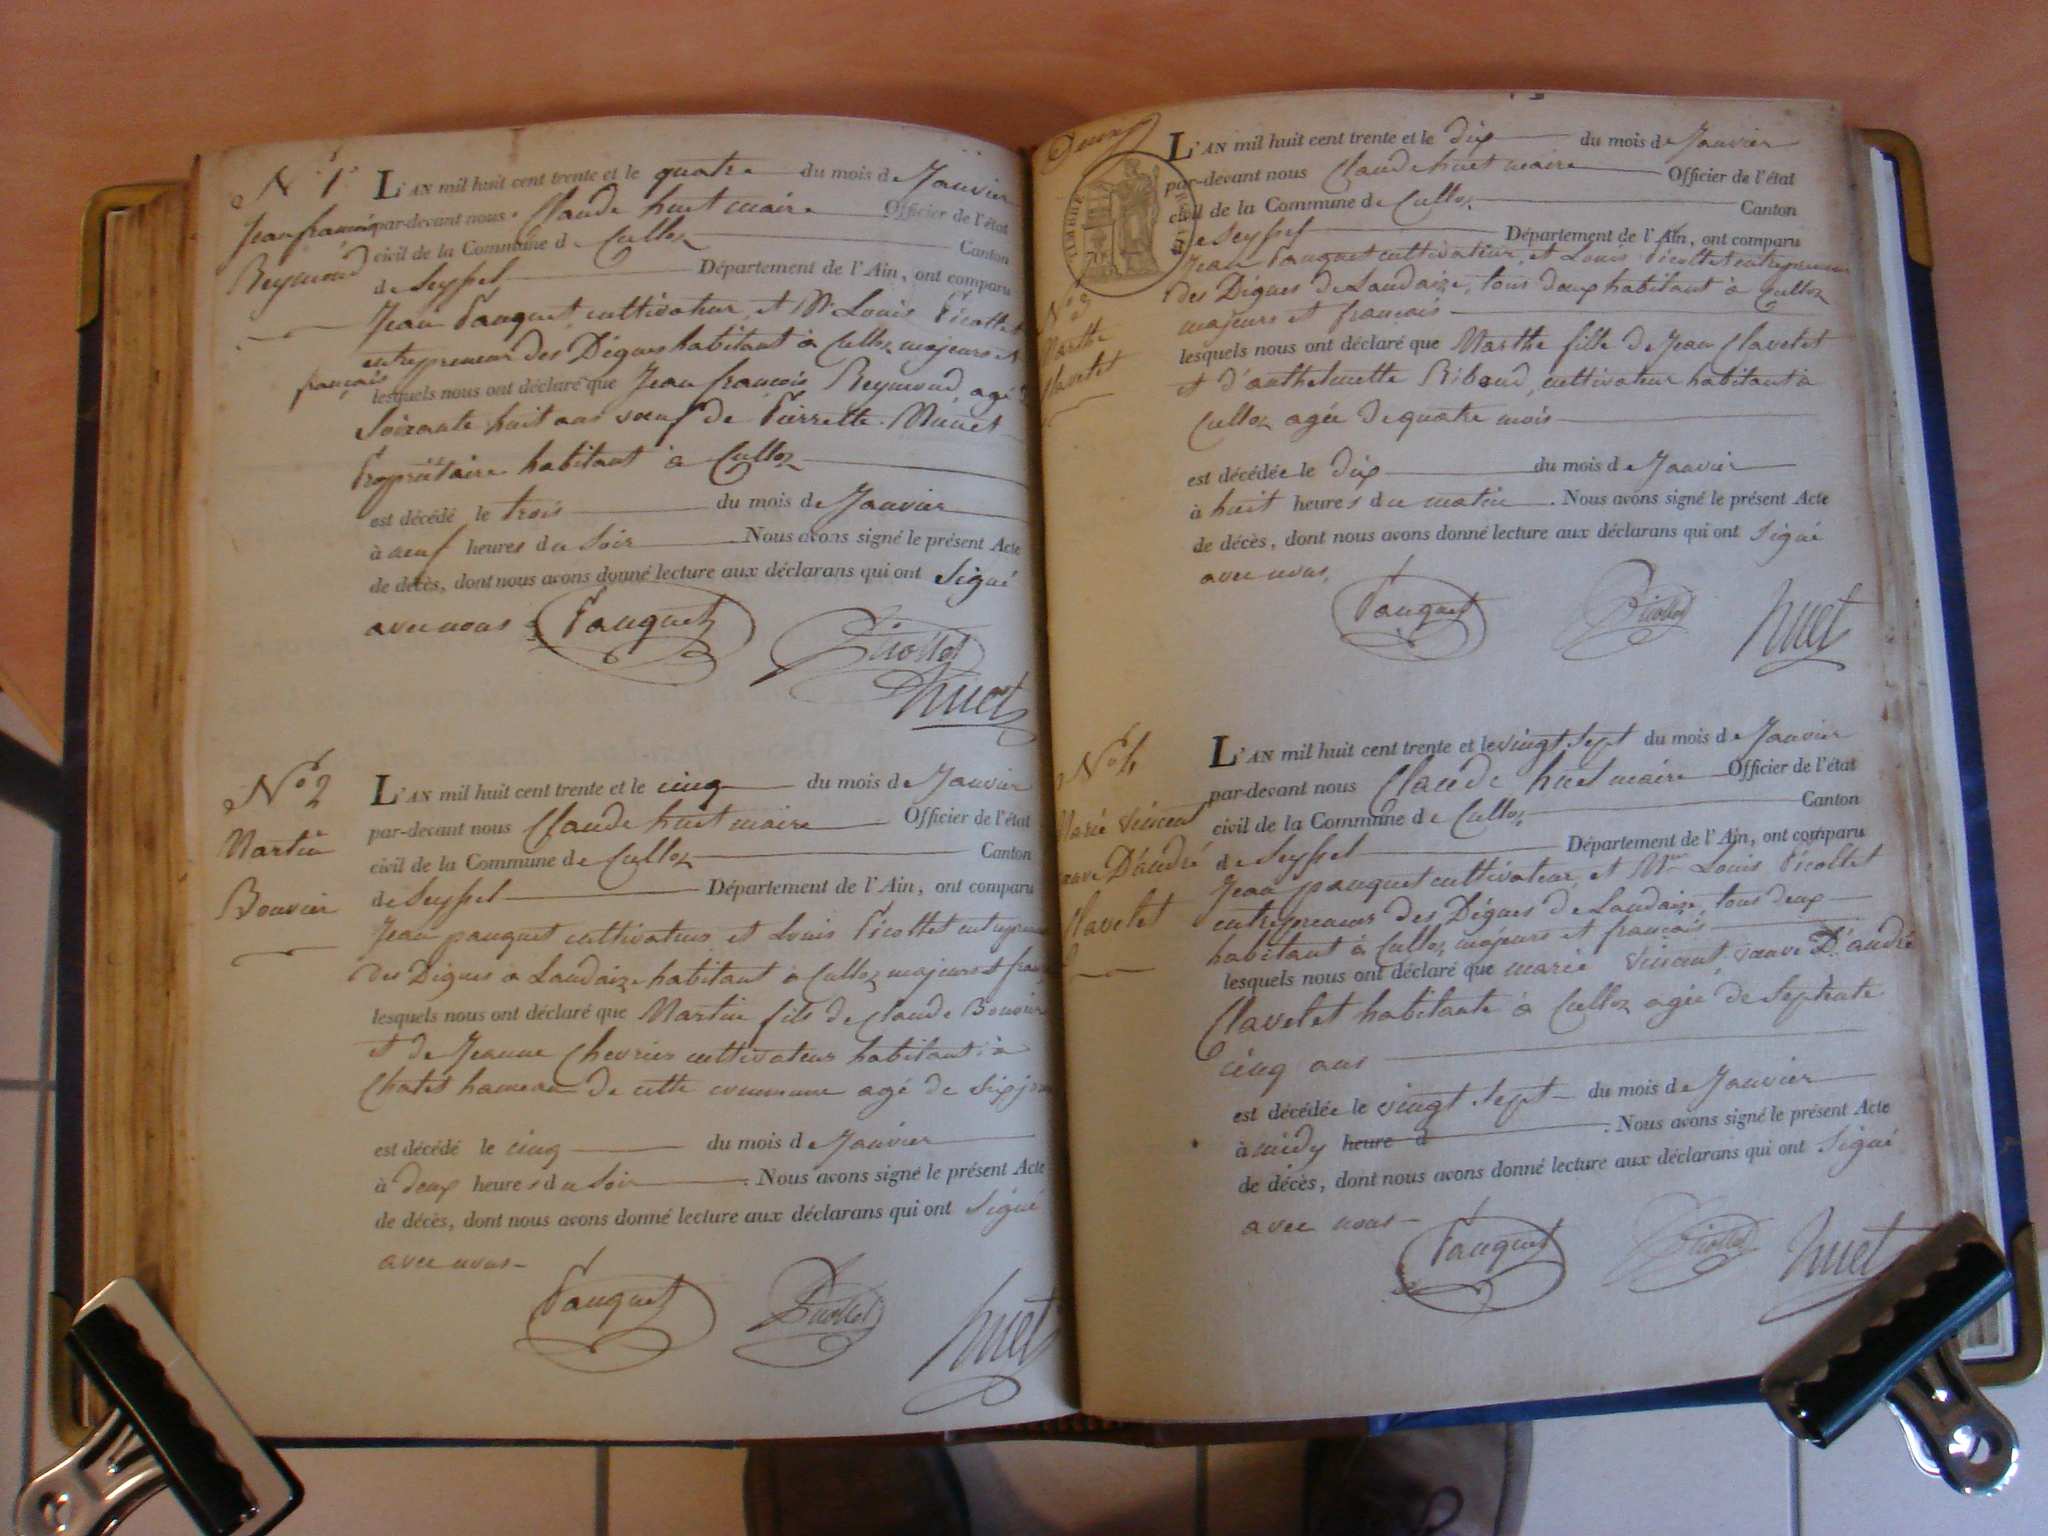 N° 1er
Jean françois
Reymond
L'AN mil huit cent trente et le quatre du mois de Janvier
par-devant nous Claude huet maire Officier de l'état
civil de la Commune de Culloz Canton
de Seyssel Département de l'Ain, ont comparu
Jean Pauquet cultivateur, et Mr Louis Picollet
entrepreneur des Digues habitant à Culloz majeurs et
français
lesquels nous ont déclaré que Jean françois Reymond, agé de
Soixante huit ans veuf de Pierrette
Propriétaire habitant à Culloz
est décédé le trois du mois de Janvier
à neuf heures du Soir. Nous avons signé le présent Acte
de décès, dont nous avons donné lecture aux déclarans qui ont Signé
avec nous
Pauquet
Picollet
huet
N° 2
Martin
Bouvier
L'AN mil huit cent trente et le cinq du mois de Janvier
par-devant nous Claude huet maire Officier de l'état
civil de la Commune de Culloz Canton
de Seyssel Département de l'Ain, ont comparu
Jean pauquet cultivateur, et Louis Picollet
des Digues à Landaize habitant à Culloz majeurs et
lesquels nous ont déclaré que Martin fils de Claude Bouvier
et de Jeanne Chevrier cultivateur habitant à
Chatel hameau de cette commune agé de Six jours
est décédé le cinq du mois de Janvier
à deux heures du Soir. Nous avons signé le présent Acte
de décès, dont nous avons donné lecture aux déclarans qui ont Signé
avec nous
Pauquet
Picollet
huet
TIMBRE ROYAL
N° 3
Marthe
Clavelet
L'AN mil huit cent trente et le dix du mois de Janvier
par-devant nous Claude huet maire Officier de l'état
civil de la Commune de Culloz Canton
de Seyssel Département de l'Ain, ont comparu
Jean Pauquet cultivateur, et Louis Picollet entrepreneur
des Digues de Landaize, tous deux habitant à Culloz
majeurs et français
lesquels nous ont déclaré que Marthe fille de Jean Clavelet
et d'anthelmette Riboud, cultivateur habitant à
Culloz agée de quatre mois
est décédée le dix du mois de Janvier
à huit heures du matin. Nous avons signé le présent Acte
de décès, dont nous avons donné lecture aux déclarans qui ont Signé
avec nous.
Pauquet
Picollet
huet
N° 4
Marie Vincent
veuve D'andré
Clavelet
L'AN mil huit cent trente et le vingt Sept du mois de Janvier
par-devant nous Claude huet maire Officier de l'état
civil de la Commune de Culloz Canton
de Seyssel Département de l'Ain, ont comparu
Jean pauquet cultivateur, et Mr Louis Picollet
entrepreneur des Digues de Landaize, tous deux
habitant à Culloz, majeurs et français
lesquels nous ont déclaré que marie Vincent, veuve D'andré
Clavelet habitante à Culloz agée de Septente
cinq ans
est décédée le vingt Sept du mois de Janvier
à midy heure d. Nous avons signé le présent Acte
de décès, dont nous avons donné lecture aux déclarans qui ont Signé
avec nous
Pauquet
Picollet
huet